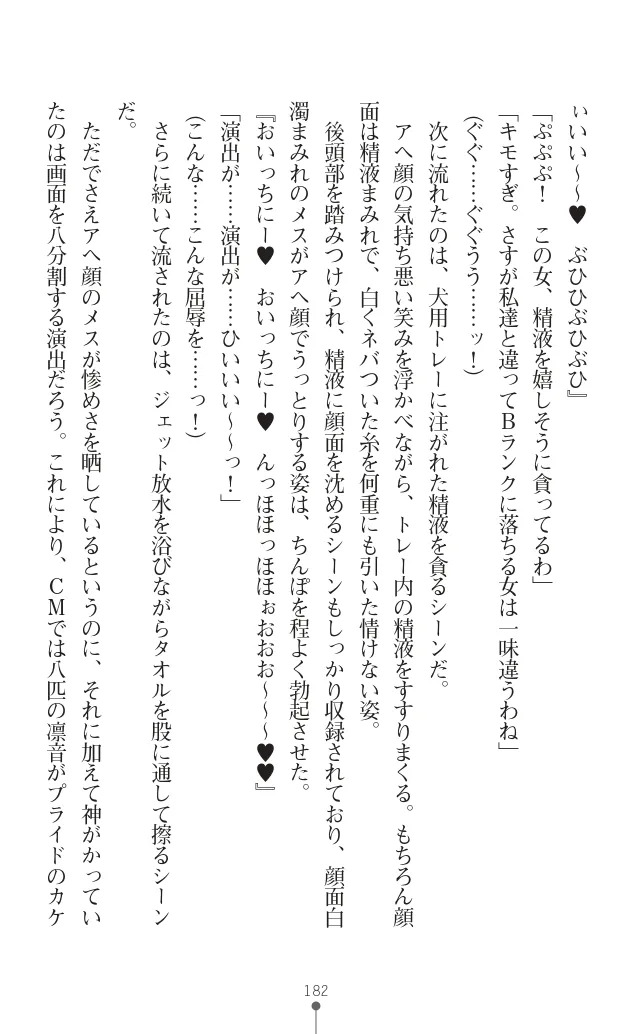 ぃいい～～♥　ぶひひぶひぶひ』
「ぷぷぷ！　この女、精液を嬉しそうに貪ってるわ」
「キモすぎ。さすが私達と違ってＢランクに落ちる女は一味違うわね」
（ぐぐ……ぐぐうう……ッ！）
次に流れたのは、犬用トレーに注がれた精液を貪るシーンだ。
アヘ顔の気持ち悪い笑みを浮かべながら、トレー内の精液をすすりまくる。もちろん顔
面は精液まみれで、白くネバついた糸を何重にも引いた情けない姿。
後頭部を踏みつけられ、精液に顔面を沈めるシーンもしっかり収録されており、顔面白
濁まみれのメスがアヘ顔でうっとりする姿は、ちんぽを程よく勃起させた。
『おいっちにー♥　おいっちにー♥　んっほほっほほぉおおお～～～♥♥』
「演出が……演出が……ひいいい～～っ！」
（こんな……こんな屈辱を……っ！）
さらに続いて流されたのは、ジェット放水を浴びながらタオルを股に通して擦るシーン
だ。
ただでさえアヘ顔のメスが惨めさを晒しているというのに、それに加えて神がかってい
たのは画面を八分割する演出だろう。これにより、ＣＭでは八匹の凛音がプライドのカケ
182